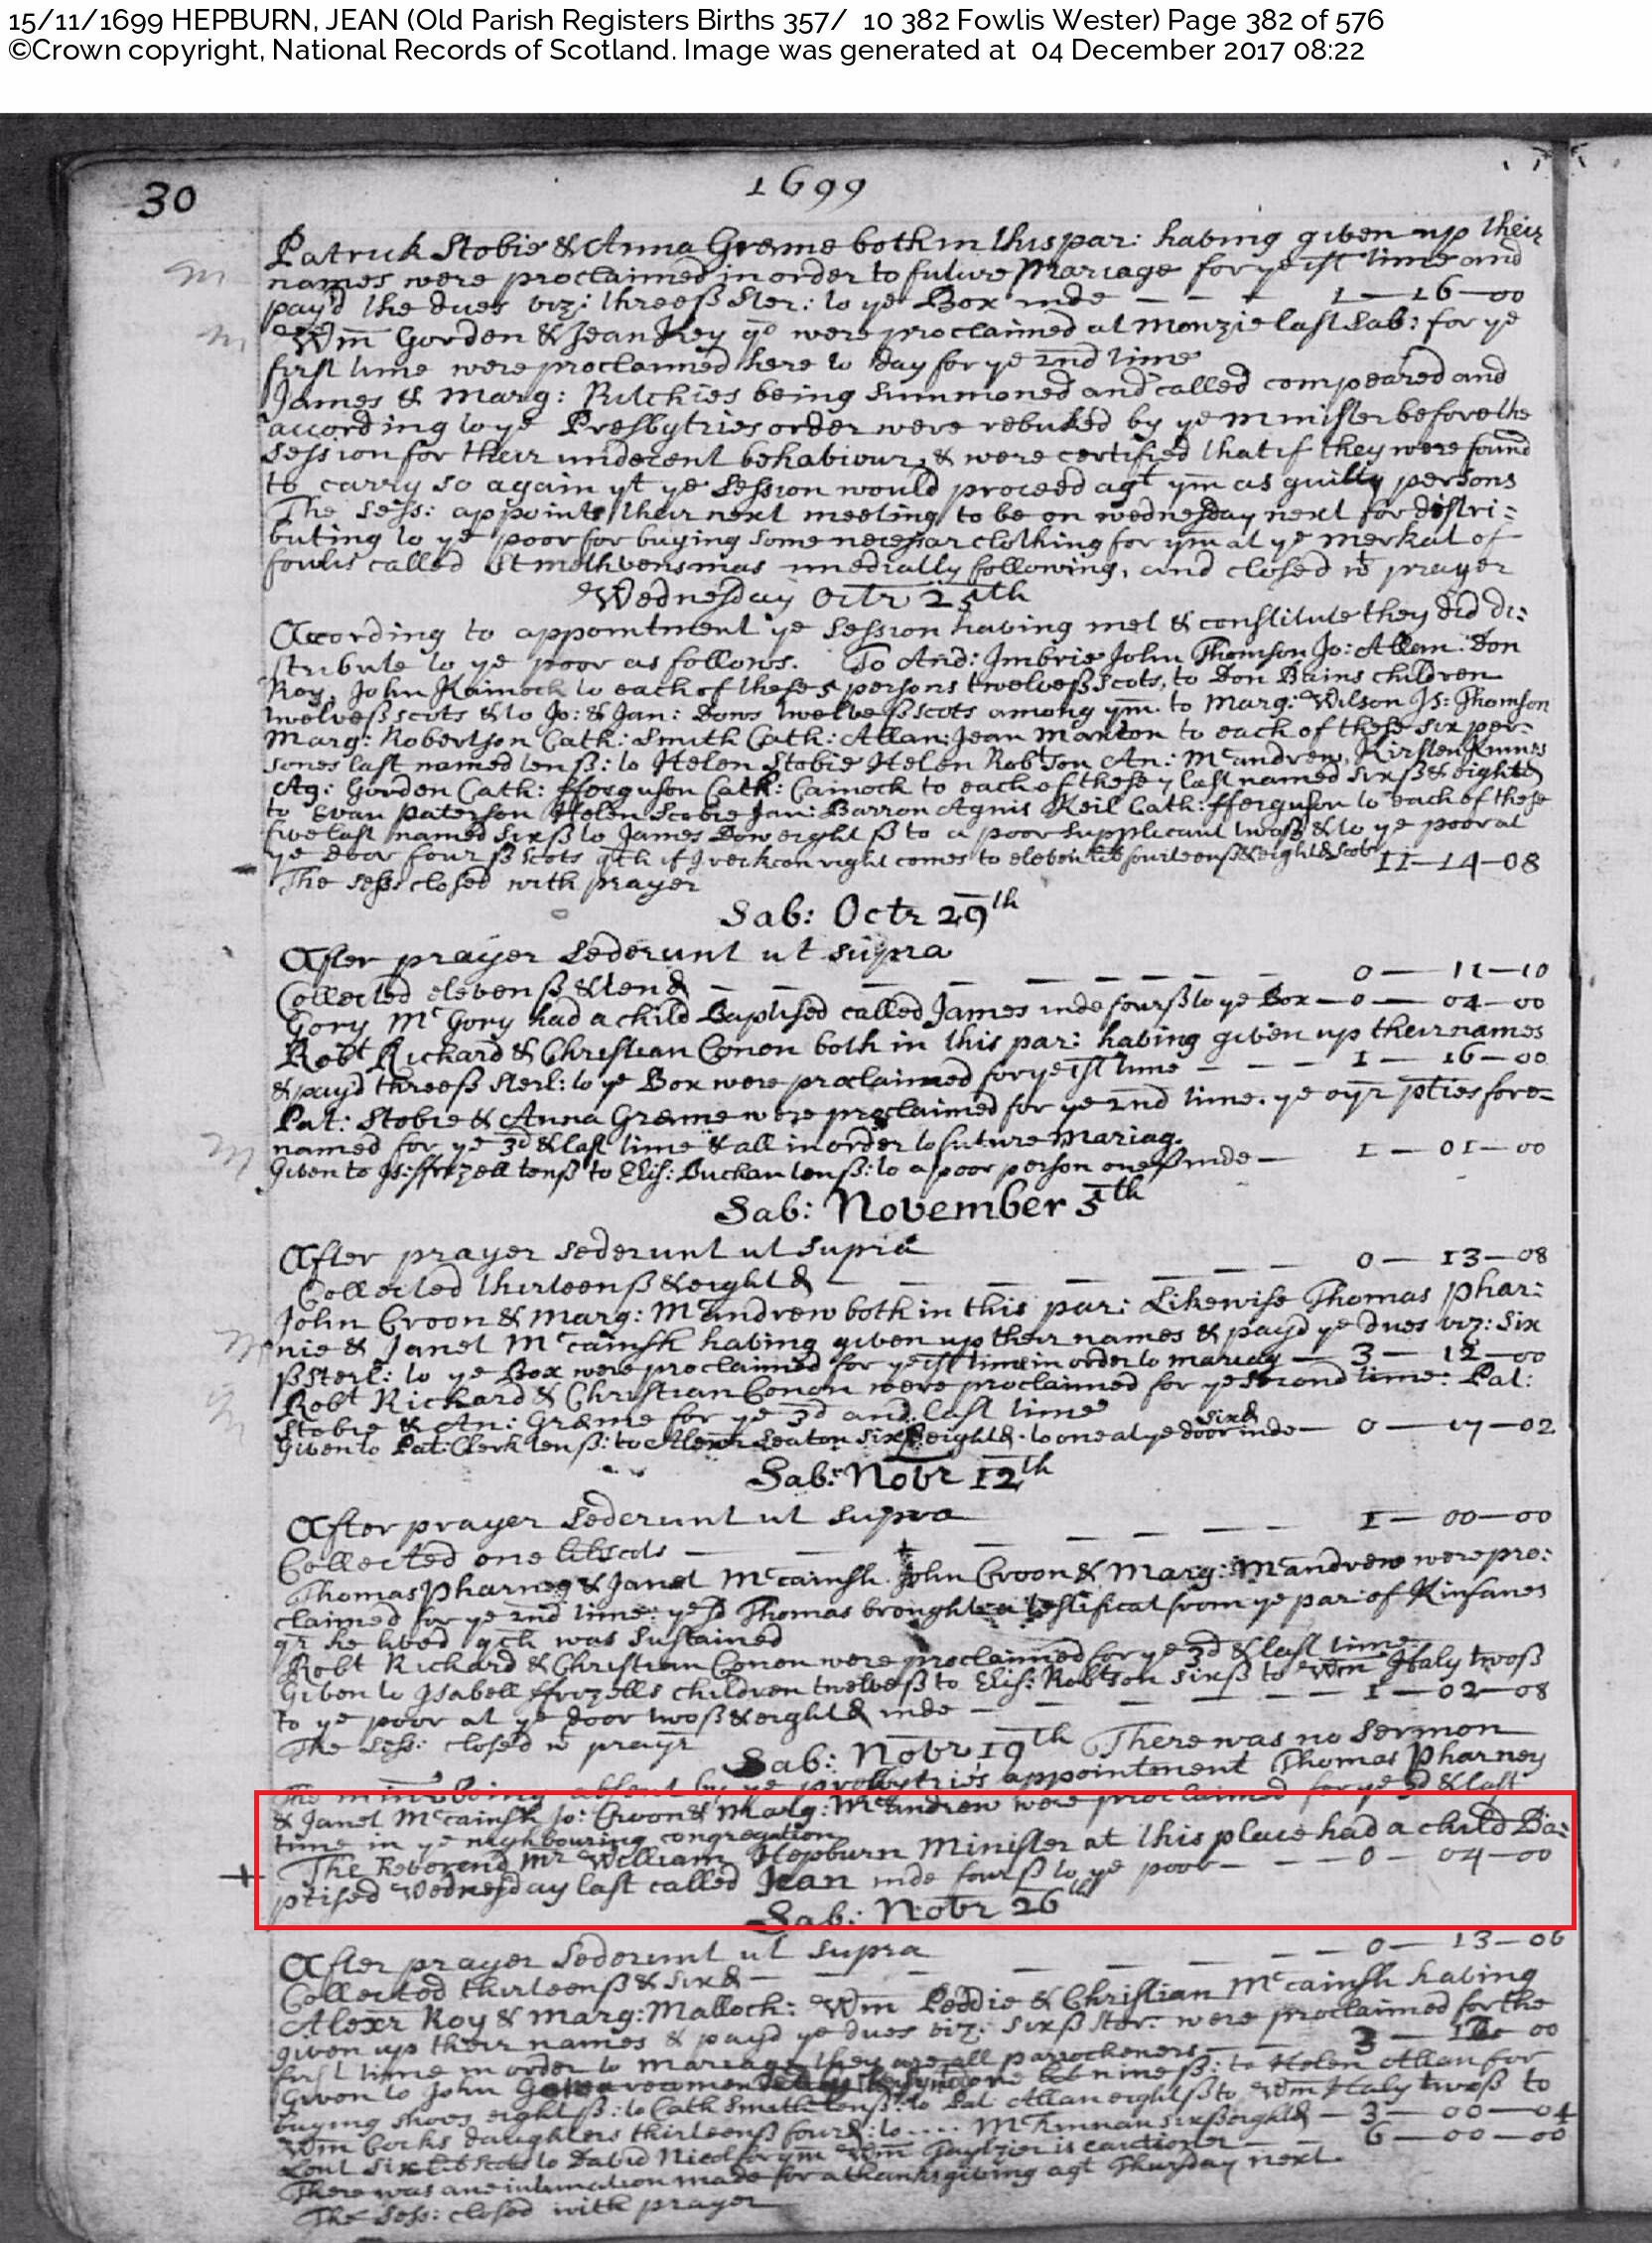 15/11/1699 HEPBURN, JEAN (Old Parish Registers Births 357/  10 382 Fowlis Wester) Page 382 of 576
©Crown copyright, National Records of Scotland. Image was generated at  04 December 2017 08:22
30
1699
Patrick Stobie & Anna Græme both in this par: having given up their
names were proclaimed in order to future Mariage for ye 1st time and
pay'd the dues viz: three ß ster: to ye Box inde — — — 1—16—00
Wm Gorden & Jean Key qo were proclaimed at Monzie last Sab: for ye
first time were proclaimed here to day for ye 2nd time
James & Marg: Ritchies being summoned and called compeared and
according to ye Presbytries order were rebuked by ye minister before the
Session for their undecent behaviour, & were certified that if they were found
to carry so again yt ye Session would proceed agt ym as guilty persons
The Sess: appoints their next meeting to be on wednesday next for distri:
buting to ye poor for buying some necessar clothing for ym at ye merkat of
foulis called St methvensmas imediatly following, and closed wt prayer
Wednesday Octr 25th
According to appointment ye Session having met & constitute they did di:
stribute to ye poor as follows. To And: Imbrie John Thomson Jo: Allan Don
Roy, John Kainock to each of these 5 persons twelve ß scots, to Don Bains children
twelve ß scots & to Jo: & Jan: Dows twelve ß scots among ym. to Marg: Wilson Js: Thomson
Marg: Robertson Cath: Smith Cath: Allan: Jean Marton to each of these six per:
sones last named ten ß: to Helen Stobie Helen Robtson An: Mcandrew, Kirsten
Ag: Gorden Cath: fferguson Cath: Cainock to each of these 7 last named six ß & eight d
to Evan Paterson Helen Scobie Jan: Barron Agnis Keil Cath: fferguson to each of these
five last named six ß to James Dow eight ß to a poor supplicant two ß & to ye poor at
ye door four ß scots qch if I reckon right comes to eleven lib fourteen ß & eight d scots 11—14—08
The sess: closed with prayer
Sab: Octr 29th
After prayer Sederunt ut supra
Collected eleven ß & ten d — — — — — — — 0 — 11—10
Gory McGory had a child Baptised called James inde four ß to ye Box — 0 — 04—00
Robt Rickard & Christian Conon both in this par: having given up their names
& pay'd three ß sterl: to ye Box were proclaimed for ye 1st time — — — 1 — 16—00
Pat: Stobie & Anna Græme were proclaimed for ye 2nd time. ye oyr pties fore=
named for ye 3d & last time & all in order to future Mariag.
Given to Js: ffrizell ten ß to Elis: Buchan ten ß: to a poor person one ß inde — 1 — 01—00
Sab: November 5th
After prayer sederunt ut supra
Collected thirteen ß & eight d — — — — — — 0 — 13—08
John Croon & Marg: Mcandrew both in this par: Likewise Thomas Phar:
nie & Janet Mccainsh having given up their names & pay'd ye dues viz: six
ß sterl: to ye Box were proclaimed for ye 1st time in order to mariag — 3 — 12—00
Robt Rickard & Christian Conon were proclaimed for ye second time: Pat:
Stobie & An: Græme for ye 3d and last time
Given to Pat: Clerk ten ß: to Alexr Seaton six ß eight d: to one at ye door six d inde — 0 — 17—02
Sab: Nobr 12th
After prayer Sederunt ut supra
Collected one lib scots — — — — — 1 — 00—00
Thomas Pharney & Janet Mccainsh John Croon & Marg: Mcandrew were pro:
claimed for ye 2nd time: ye sd Thomas brought a testificat from ye par: of Kinfanes
qr he lived qch was sustained
Robt Rickard & Christian Conon were proclaimed for ye 3d & last time
Given to Isabell ffrizells children twelve ß to Elis: Robtson six ß to Wm Haly two ß
to ye poor at ye door two ß & eight d inde — — — — — 1—02—08
The Sess: closed w prayr
Sab: Nobr 19th There was no Sermon
The minr being absent by ye presbytries appointment Thomas Pharney
& Janet Mccainsh Jo: Croon & Marg: Mcandrew were proclaimed for ye 3d & last
time in ye neighbouring congregation
The Reverend Mr William Hepburn Minister at this place had a child Ba:
ptised Wednesday last called Jean inde four ß to ye poor — — — 0 — 04—00
Sab: Nobr 26th
After prayer Sederunt ut supra
Collected thirteen ß & six d — — — — — 0 — 13—06
Alexr Roy & Marg: Malloch: Wm Peddie & Christian Mccainsh having
given up their names & pay'd ye dues viz: six ß ster: were proclaimed for the
first time in order to mariage they are all parrochoners — 3 — 12— 00
Given to John nine ß: to Helen Allan for
buying shoes eight ß: to Cath Smith ten ß: to Pat Allan eight ß to Wm Haly two ß to
Wm Corks daughters thirteen ß four d: to .... McKinnan six ß eight d — 3 — 00—04
Lent six lib scots to David Nicol for ym Wm Taylzior is cautioner — — 6 — 00—00
There was ane intimation made for a thanksgiving agt Thursday next
The Sess: closed with prayer